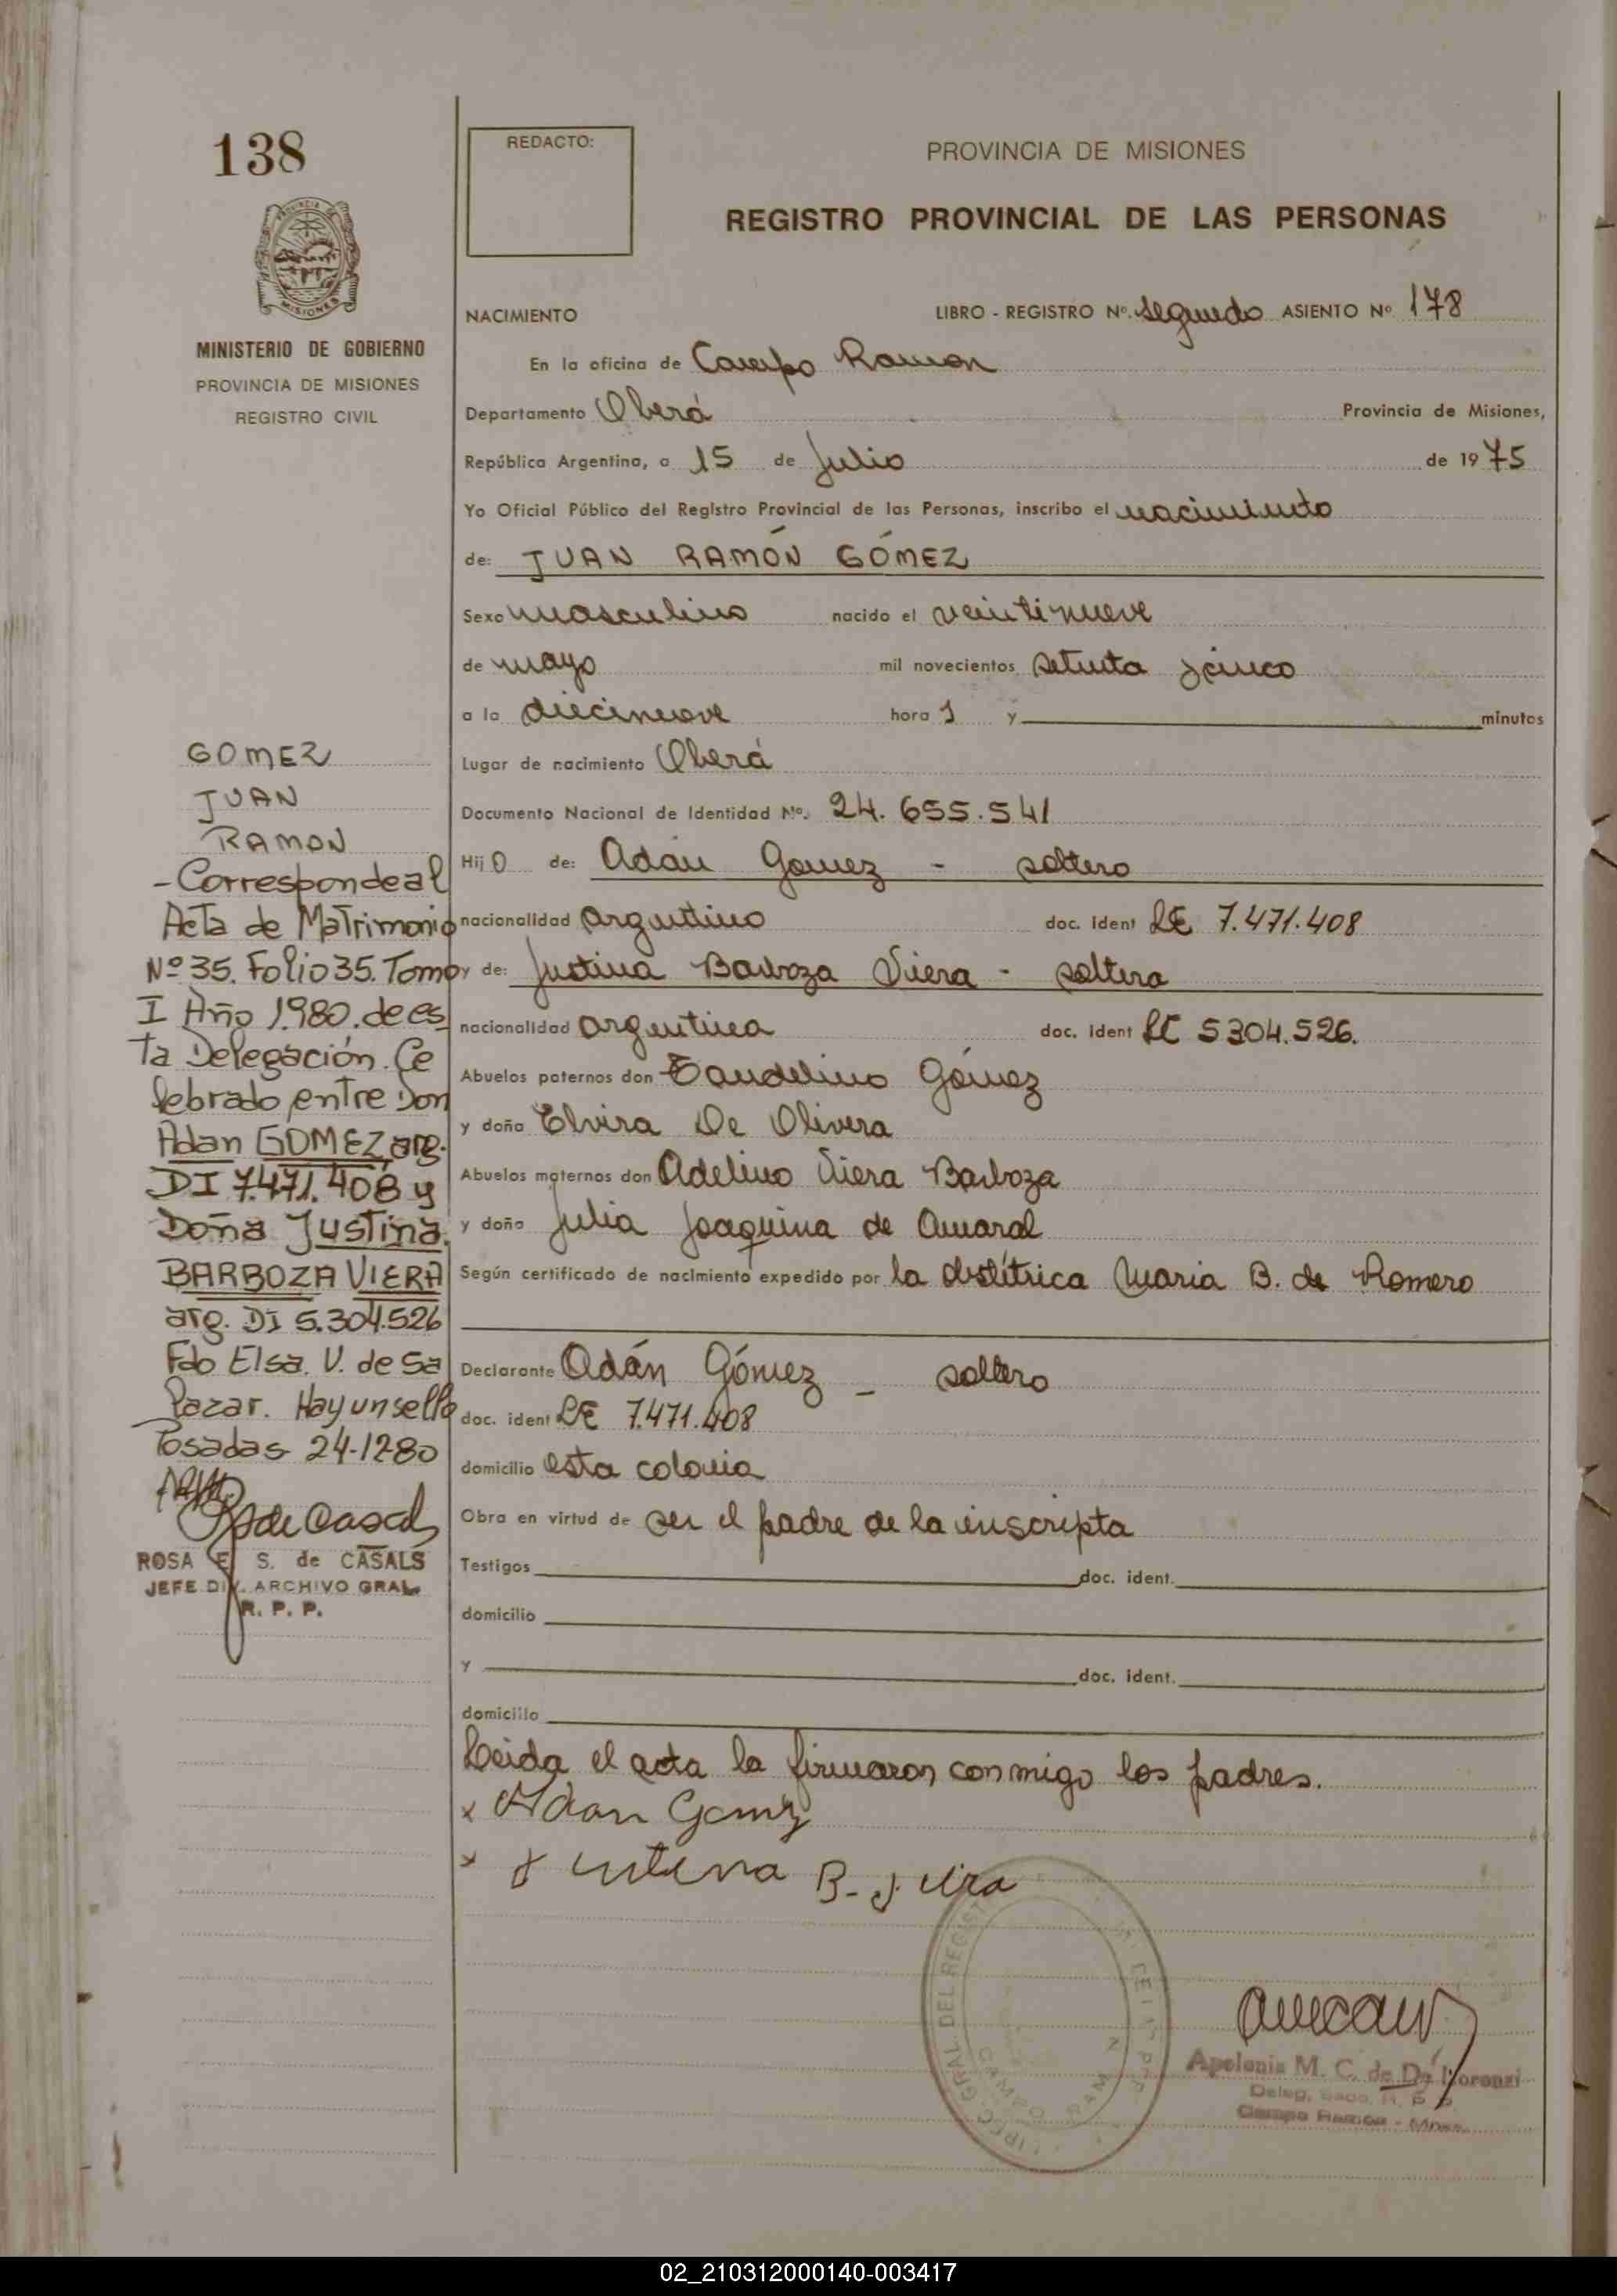 138
REDACTO:
PROVINCIA DE MISIONES
REGISTRO PROVINCIAL DE LAS PERSONAS
PROVINCIA DE
MISIONES
MINISTERIO DE GOBIERNO
PROVINCIA DE MISIONES
REGISTRO CIVIL
NACIMIENTO LIBRO - REGISTRO Nº. Segundo ASIENTO Nº 178
En la oficina de Campo Ramon
Departamento Oberá Provincia de Misiones,
República Argentina, a 15 de Julio de 1975
Yo Oficial Público del Registro Provincial de las Personas, inscribo el nacimiento
de: JUAN RAMÓN GÓMEZ
Sexo masculino nacido el veintinueve
de mayo mil novecientos setenta y cinco
a la diecinueve hora s y minutos
Lugar de nacimiento Oberá
Documento Nacional de Identidad Nº. 24.655.541
Hijo de: Adán Gomez - soltero
nacionalidad argentino doc. ident LE 7.471.408
y de: Justina Barboza Viera - soltera
nacionalidad argentina doc. ident LC 5304.526.
Abuelos paternos don Gómez
y doña Elvira De Olivera
Abuelos maternos don Adelino Viera Barboza
y doña Julia Joaquina de Amaral
Según certificado de nacimiento expedido por la obstétrica Maria B. de Romero
Declarante Adán Gómez - soltero
doc. ident LE 7.471.408
domicilio esta colonia
Obra en virtud de ser el padre de la inscripta
Testigos doc. ident.
domicilio
y doc. ident.
domicilio
Leida el acta la firmaron conmigo los padres.
x Adan Gomez
x Justina B. Viera
GOMEZ
JUAN
RAMON
- Corresponde al
Acta de Matrimonio
Nº 35. Folio 35. Tomo
I Año 1.980. de es
ta Delegación. Ce
lebrado entre Don
Adan GOMEZ arg.
DI 7.471.408 y
Doña Justina
BARBOZA VIERA
arg. DI 5.304.526
Fdo Elsa. V. de Sa
lazar. Hay un sello
Posadas 24-12-80
ROSA E. S. de CASALS
JEFE DIV. ARCHIVO GRAL.
R. P. P.
GRAL. DEL REGIST
CAMPO RAM N
Apolonia M. C. de De Lorenzi
Campo Ramon - Mnes.
02_210312000140-003417